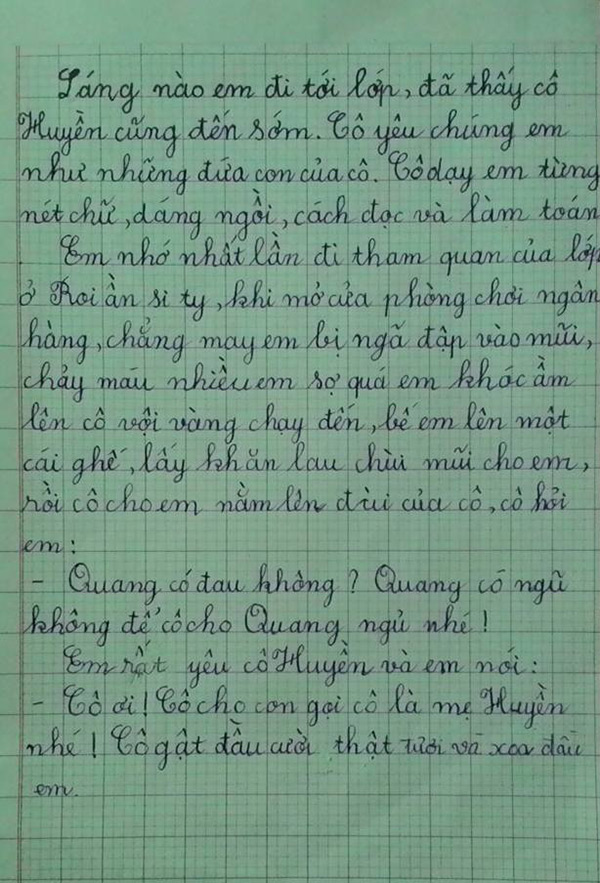 Sáng nào em đi tới lớp, đã thấy cô
Huyền cũng đến sớm. Cô yêu chúng em
như những đứa con của cô. Cô dạy em từng
nét chữ, dáng ngồi, cách đọc và làm toán
Em nhớ nhất lần đi tham quan của lớp
ở Roi ần si ty, khi mở cửa phòng chơi ngân
hàng, chẳng may em bị ngã đập vào mũi,
chảy máu nhiều em sợ quá em khóc ầm
lên cô vội vàng chạy đến, bế em lên một
cái ghế, lấy khăn lau chùi mũi cho em,
rồi cô cho em nằm lên đùi của cô, cô hỏi
em:
- Quang có đau không? Quang có ngũ
không để cô cho Quang ngủ nhé!
Em rất yêu cô Huyền và em nói:
- Cô ơi! Cô cho con gọi cô là mẹ Huyền
nhé! Cô gật đầu cười thật tươi và xoa đầu
em.